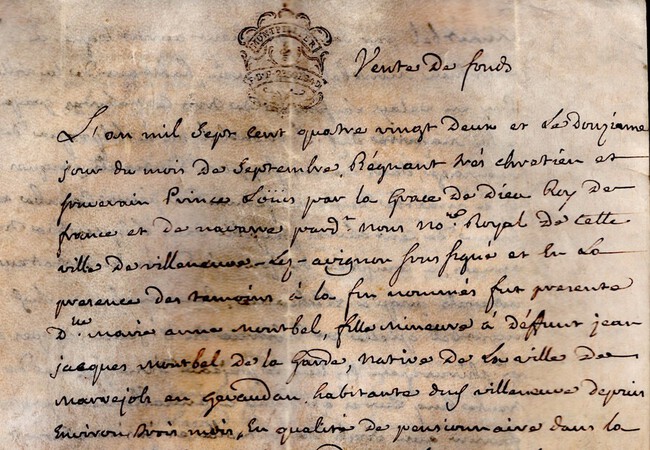 MONTPELLIER
Vente de fonds
L'an mil sept cent quatre vingt deux et Le Douzieme
jour du mois de Septembre, Régnant trés chretien et
souverain Prince Loüis par la Grace de Dieu Roy de
france et de navarre pard.t nous no.re Royal de cette
ville de villeneuve-Lez-avignon soussigné et En La
presence des temoins à la fin nommés fut presente
D.lle Marie anne Montbel, fille mineure à déffunt jean
jacques Montbel de la Garde, native de La ville de
Marvejols en Gevaudan, habitante dud. villeneuve depuis
Environ trois mois, En qualité de pensionnaire dans la